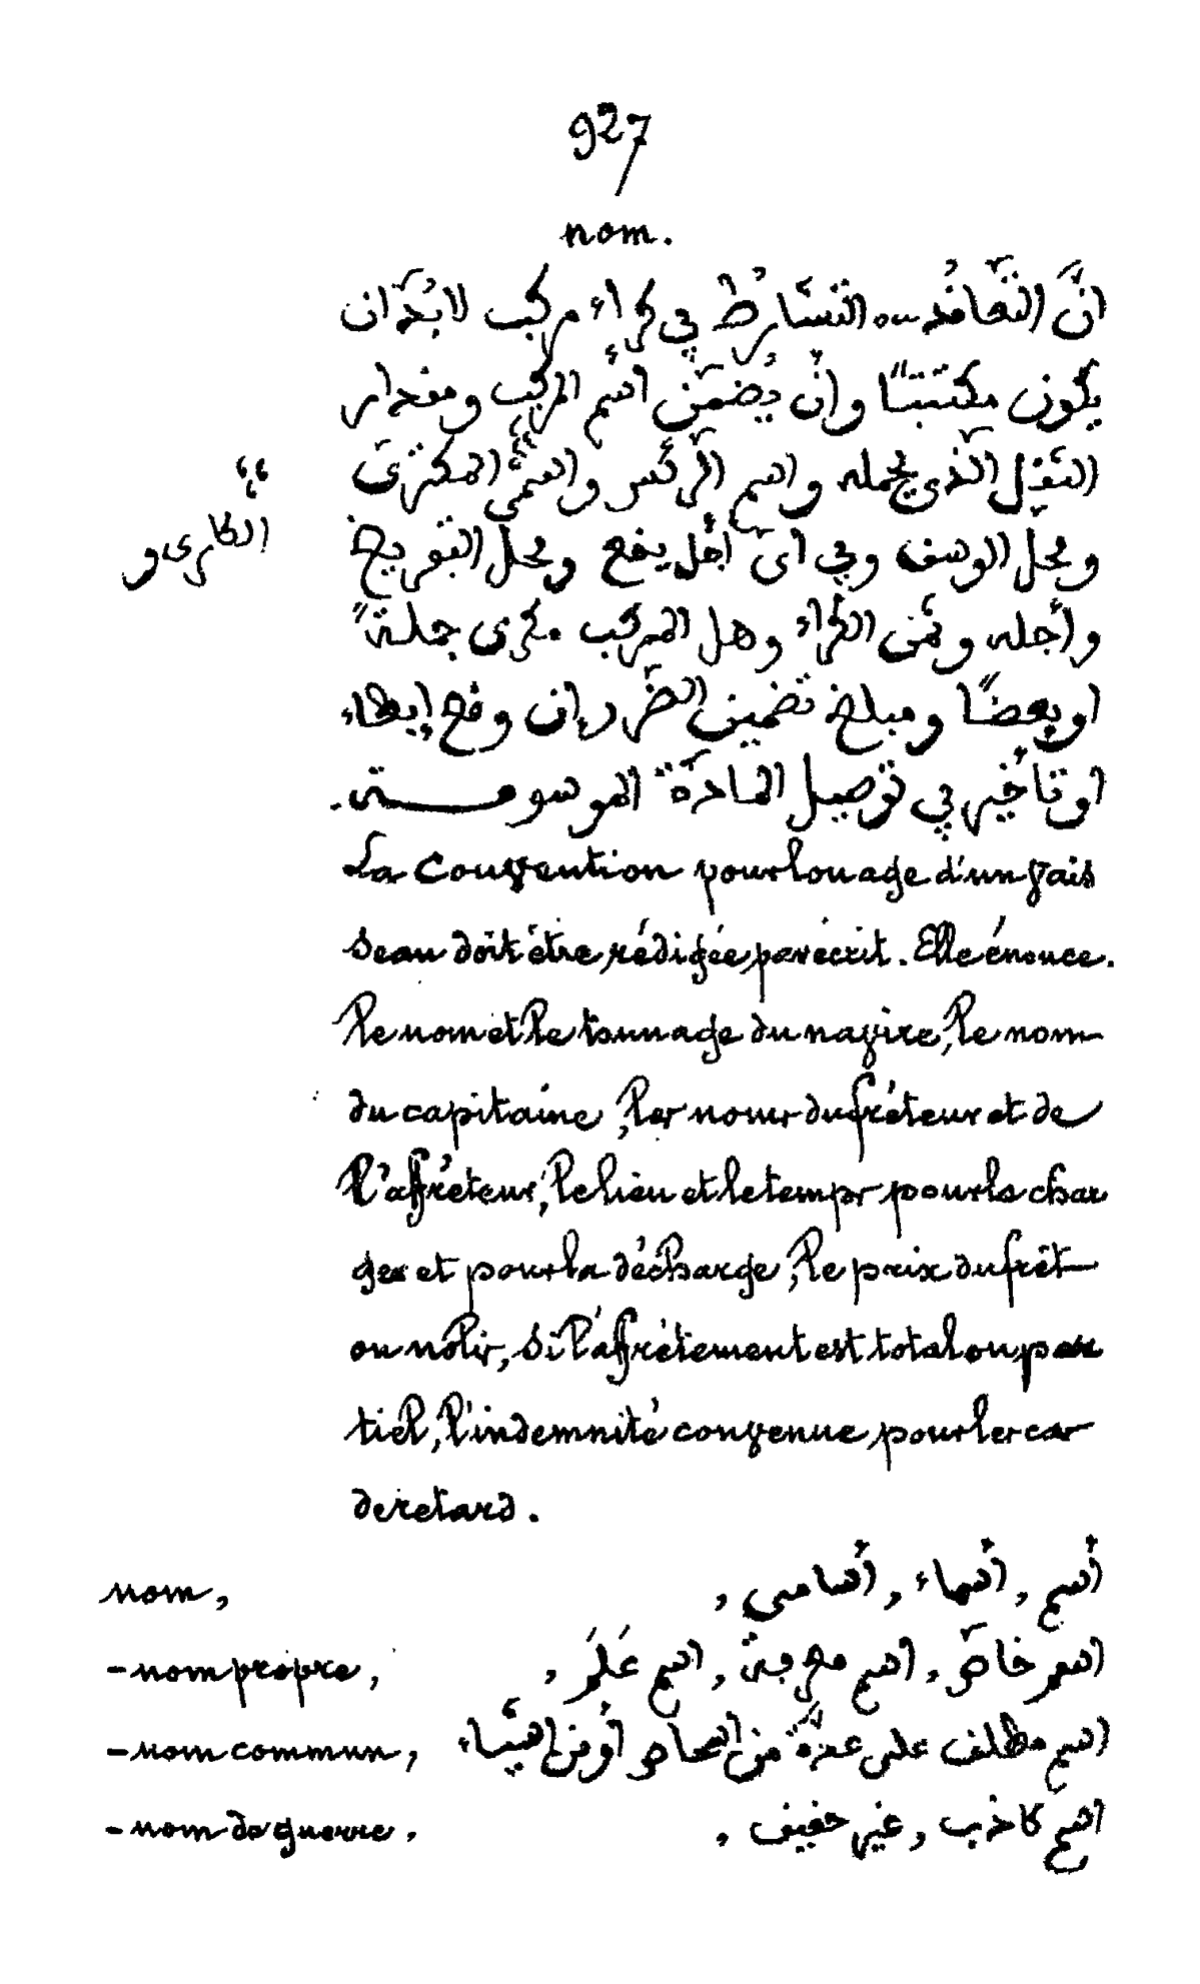 927
nom.
انَّ التَّعَاقُد ... التشَارُطُ في كراء مركب لابُدَّ ان
يكون مكتتبًا وانْ يُضمَّن اسْم المركب ومقدار
الثقل الّذي يحمله واسم الرَّئس والسُّمَي المكترى
الكارى و
ومحلّ الوسق وفي ايّ أجل يقع ومحلّ التفريغ
وأجله وثمن الكراء وهل المركب مكرى جملةً
او بعضًا ومبلغ تضمين الضّرر ان وقع إبطاء
او تأخير في توصيل المادّة الموسوقة.
La Convention pour louage d'un vais
seau doit être rédigée par écrit. Elle énonce.
le nom et le tonnage du navire, le nom
du capitaine, les noms du fréteur et de
l'affréteur, le lieu et le temps pour la char
ge et pour la décharge, le prix du frêt
ou nolis, si l'affrétement est total ou par
tiel, l'indemnité convenue pour les cas
de retard.
nom, أسْم, أسْماء, أسَامي,
- nom propre, اسم خاصّ, اسم معرفة, اسم عَلَم,
- nom commun, اسم مطلق على عدّة من اشخاص أو من اشياء
- nom de guerre, اسم كاذب, غير حقيقي,